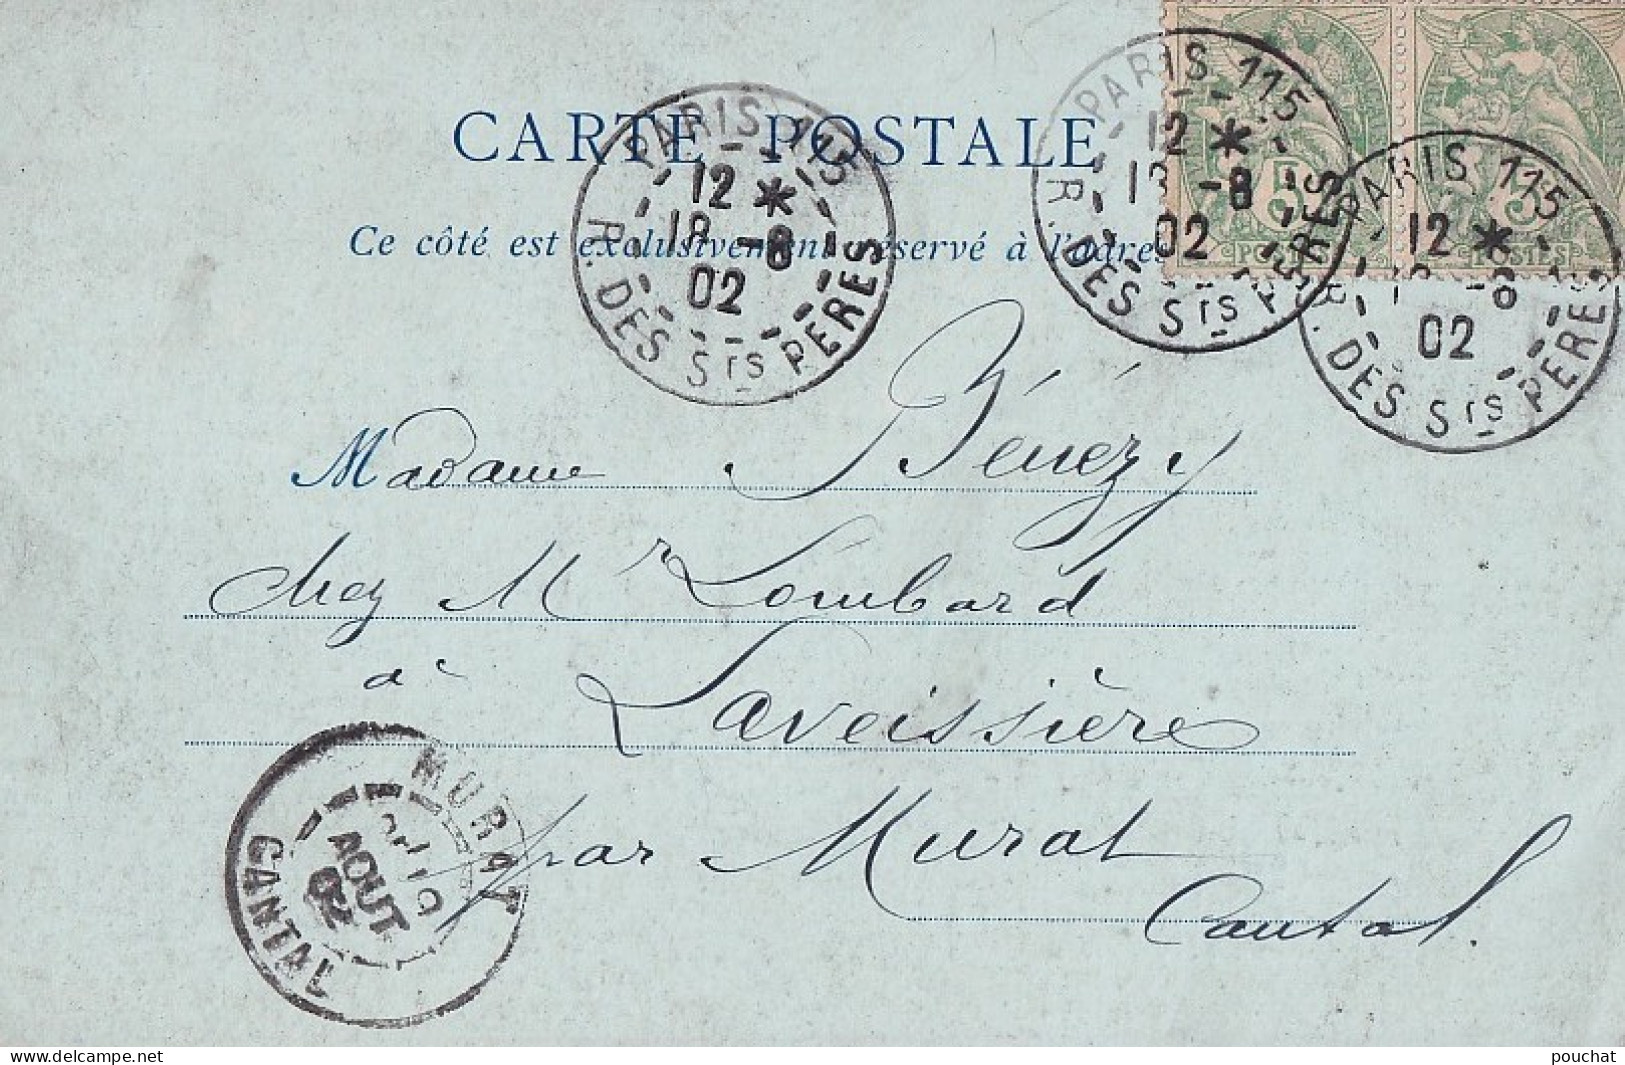 CARTE POSTALE
Ce côté est exclusivement réservé à l'adre
PARIS 115
12 *
18 -8
02
R. DES Sts PÈRES
PARIS 115
12 *
18 -8
02
R. DES Sts PÈRES
PARIS 115
12 *
-8
02
R. DES Sts PÈRES
5
POSTES
5
POSTES
Madame Bénézy
chez Mr Lombard
à Laveissière
par Murat
Cantal.
MURAT
AOUT
02
CANTAL
www.delcampe.net
pouchat